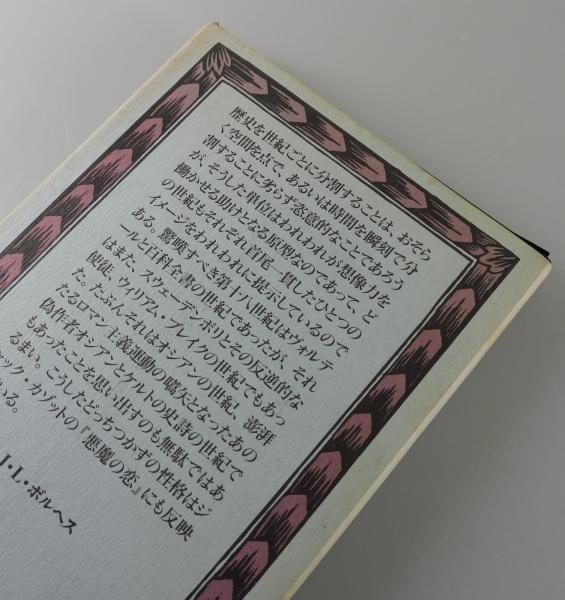 歴史を世紀ごとに分割することは、おそら
く空間を点で、あるいは時間を瞬刻で分
割することに劣らず恣意的なことであろう
が、そうした単位はわれわれが想像力を
働かせる助けとなる原型なのであって、ど
の世紀もそれぞれ首尾一貫したひとつの
イメージをわれわれに提示しているので
ある。驚嘆すべき第十八世紀はヴォルテ
ールと百科全書の世紀であったが、それ
はまた、スウェーデンボリとその反逆的な
使徒、ウィリアム・ブレイクの世紀でもあっ
た。たぶんそれはオシアンの世紀、澎湃
たるロマン主義運動の嚆矢となったあの
偽作者オシアンとケルトの史詩の世紀で
もあったことを思い出すのも無駄ではあ
るまい。こうしたどっちつかずの性格はジ
ャック・カゾットの『悪魔の恋』にも反映
いる。
J・L・ボルヘス